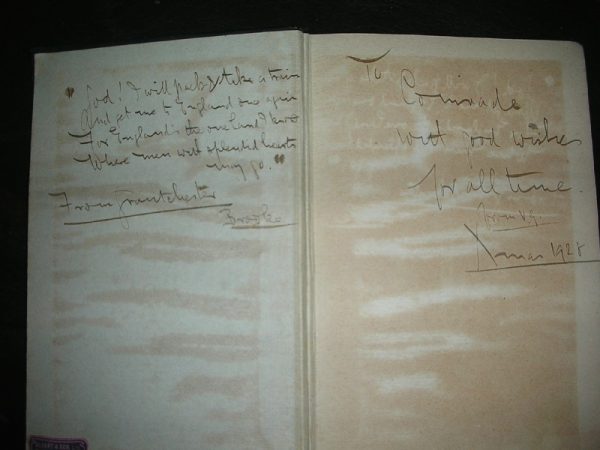 "God! I will pack & take a train
And get me to England once again
For England's the one land I know
Where men with splendid hearts
may go."
From Grantchester
Brooke
To
Comrade
with good wishes
for all time.
from
Xmas 1928